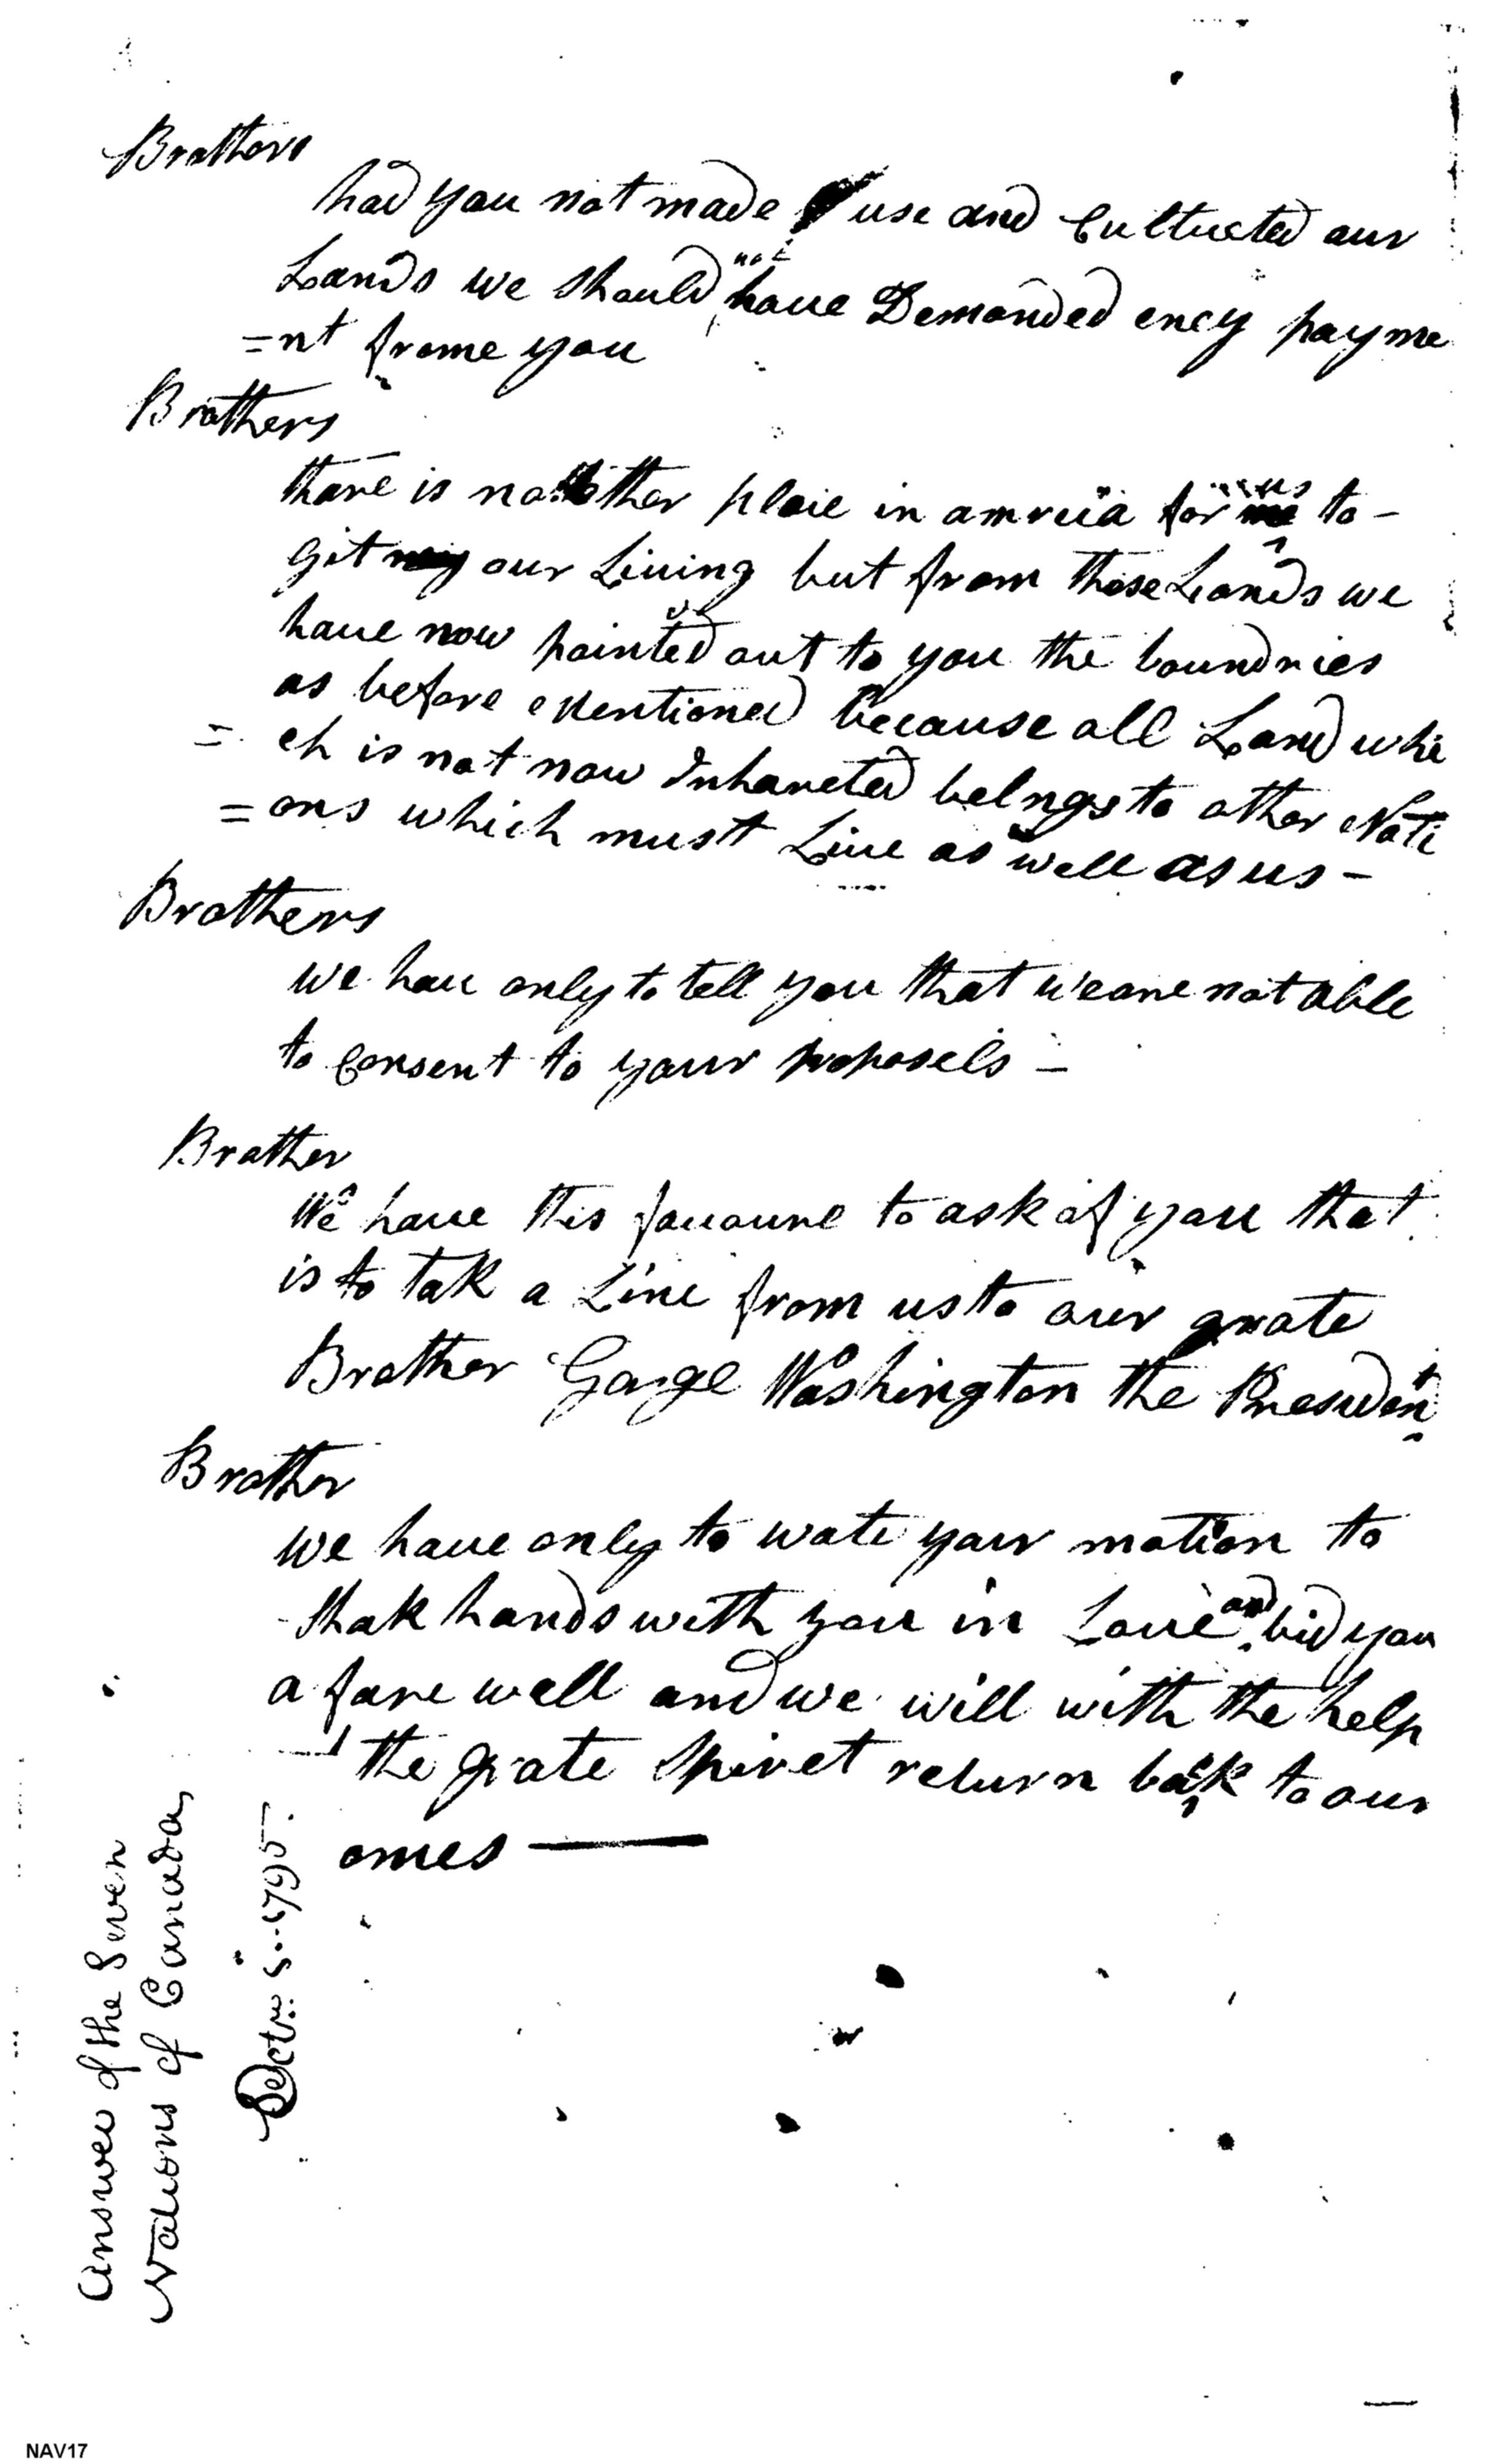 Brothers
had you not made use and Cultueted our
Lands we should not have Demanded eney payme
=nt frome you
Brothers
thare is no other plaie in amreica for us to -
git our Living but from those Lands we
have now pointed out to you the boundries
as before Mentioned because all Land whi
= ch is not now Inhareted belngs to other Nati
=ons which must Live as well as us -
Brothers
we hav only to tell you that we are not able
to Consent to your proposels -
Brother
We have this favoure to ask of you that
is to tak a Line from us to our grate
Brother Gorge Washington the Presedent
Brother
we have only to wate your motion to
shak hands with you in Love and bid you
a fare well and we will with the help
the grate Spiret return back to our
omes
Answer of the Seven
Nations of Canada,
Octr. 5. 1795.
NAV17